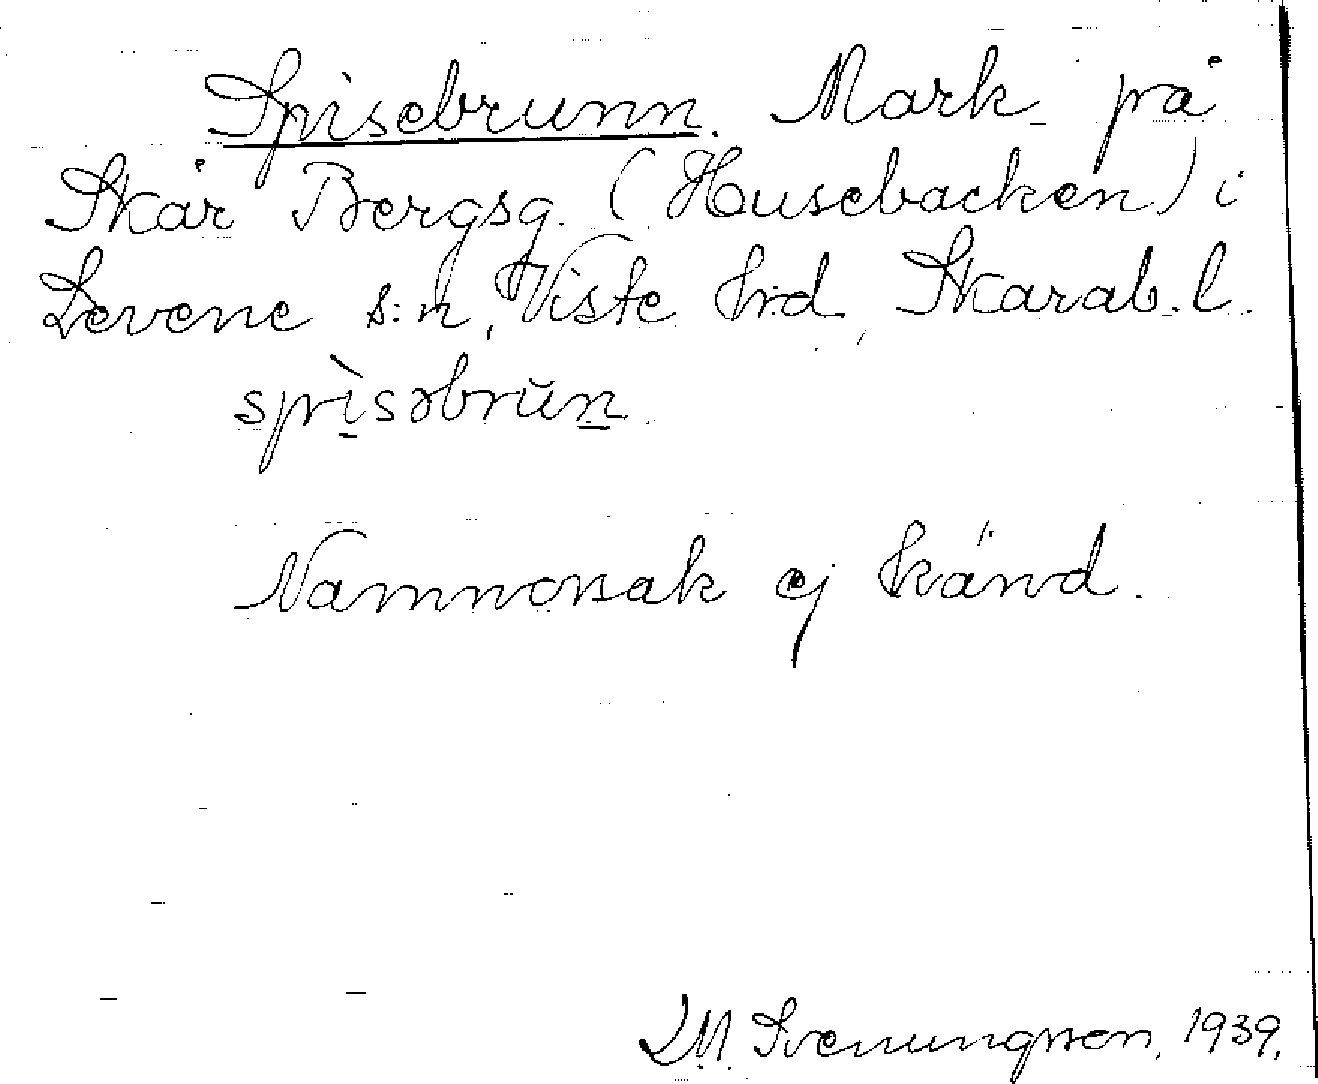 Spisebrunn. Mark på
Skår Bergsg. (Husebacken) i
Levene s:n, Viste hrd, Skarab. l.
spìsəbrŭn
Namnorsak ej känd.
LM. Svenungsson, 1939.